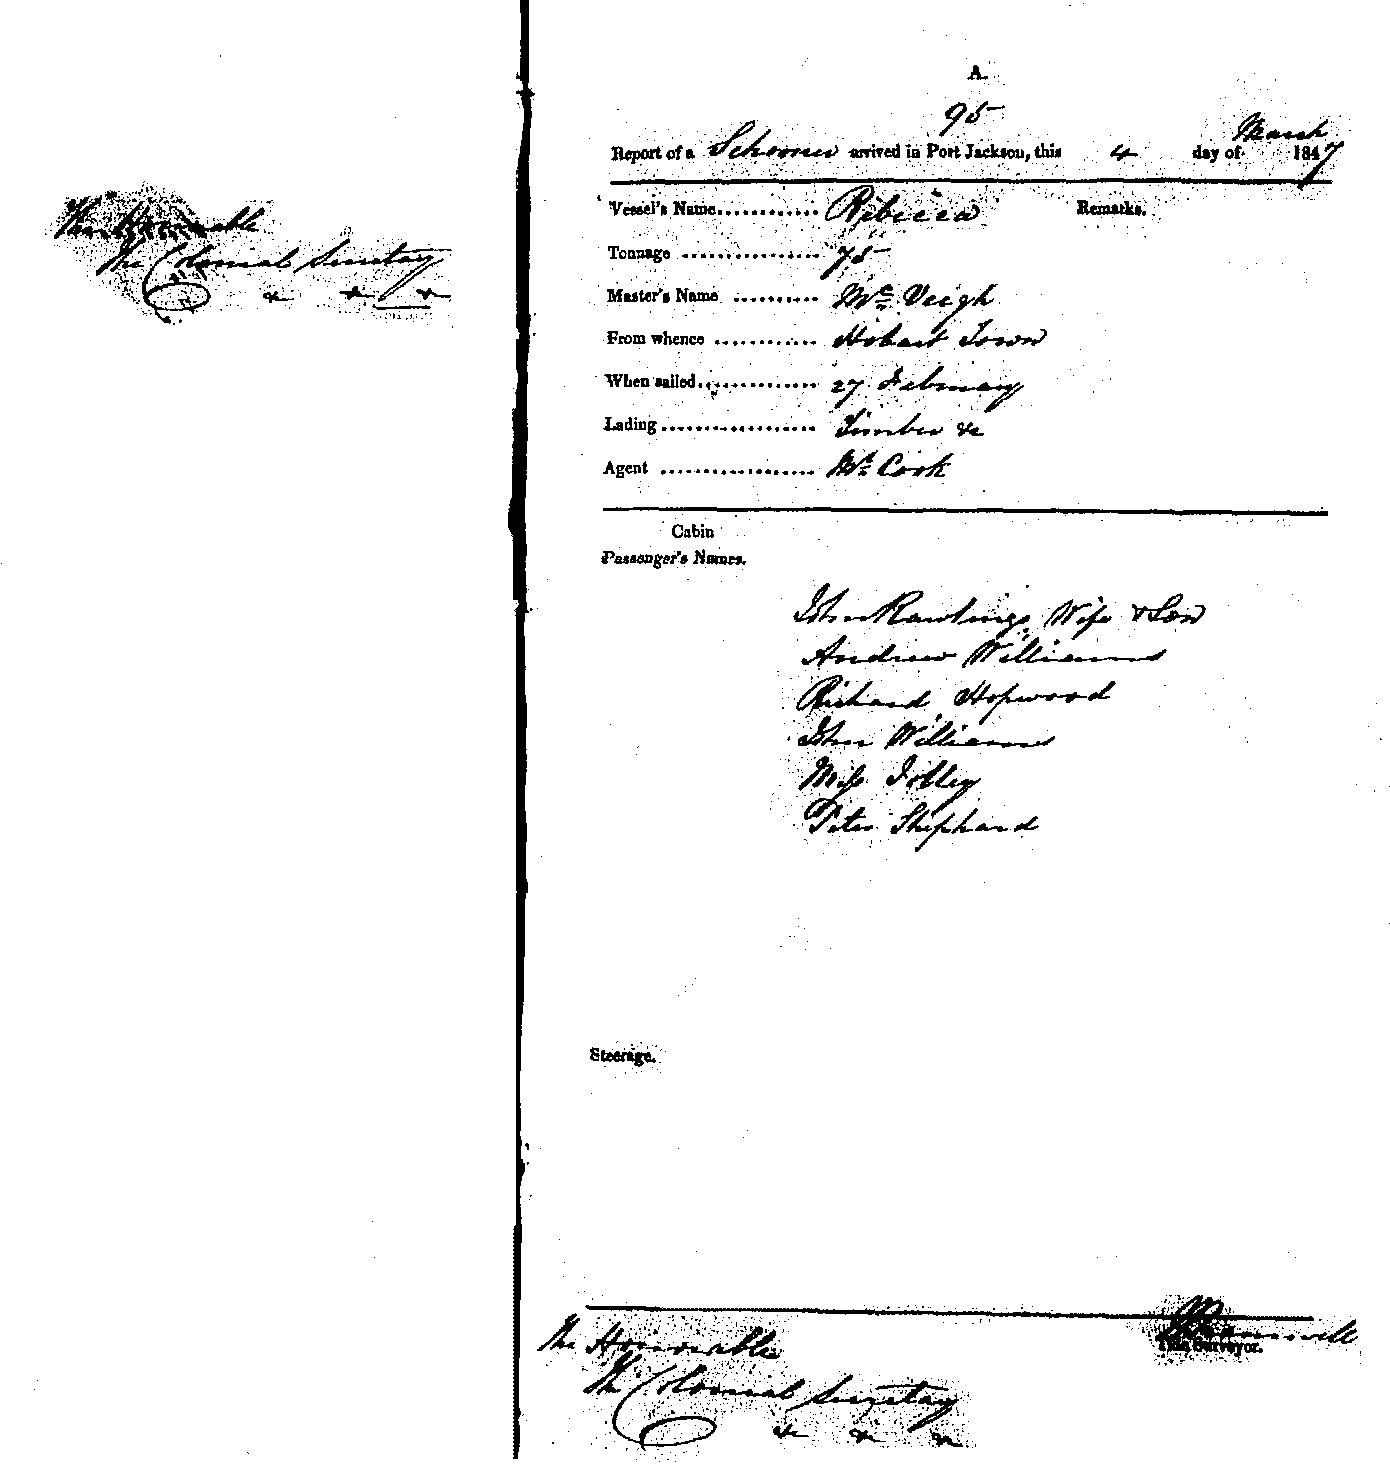 The Honorable
The Colonial Secretary
&c &c &c
A.
95
Report of a Schooner arrived in Port Jackson, this 4 day of March 1847
Vessel's Name............ Rebecca Remarks.
Tonnage ................ 75
Master's Name .......... Mc Veigh
From whence ............ Hobart Town
When sailed.............. 27 February
Lading .................. Timber &c
Agent .................. Mr Cook
Cabin
Passenger's Names.
John Rawlings Wife & Son
Andrew Williams
Richard Hopwood
John Williams
Miss Jolley
Peter Shephard
Steerage.
Tide Surveyor.
The Honorable
The Colonial Secretary
&c &c &c